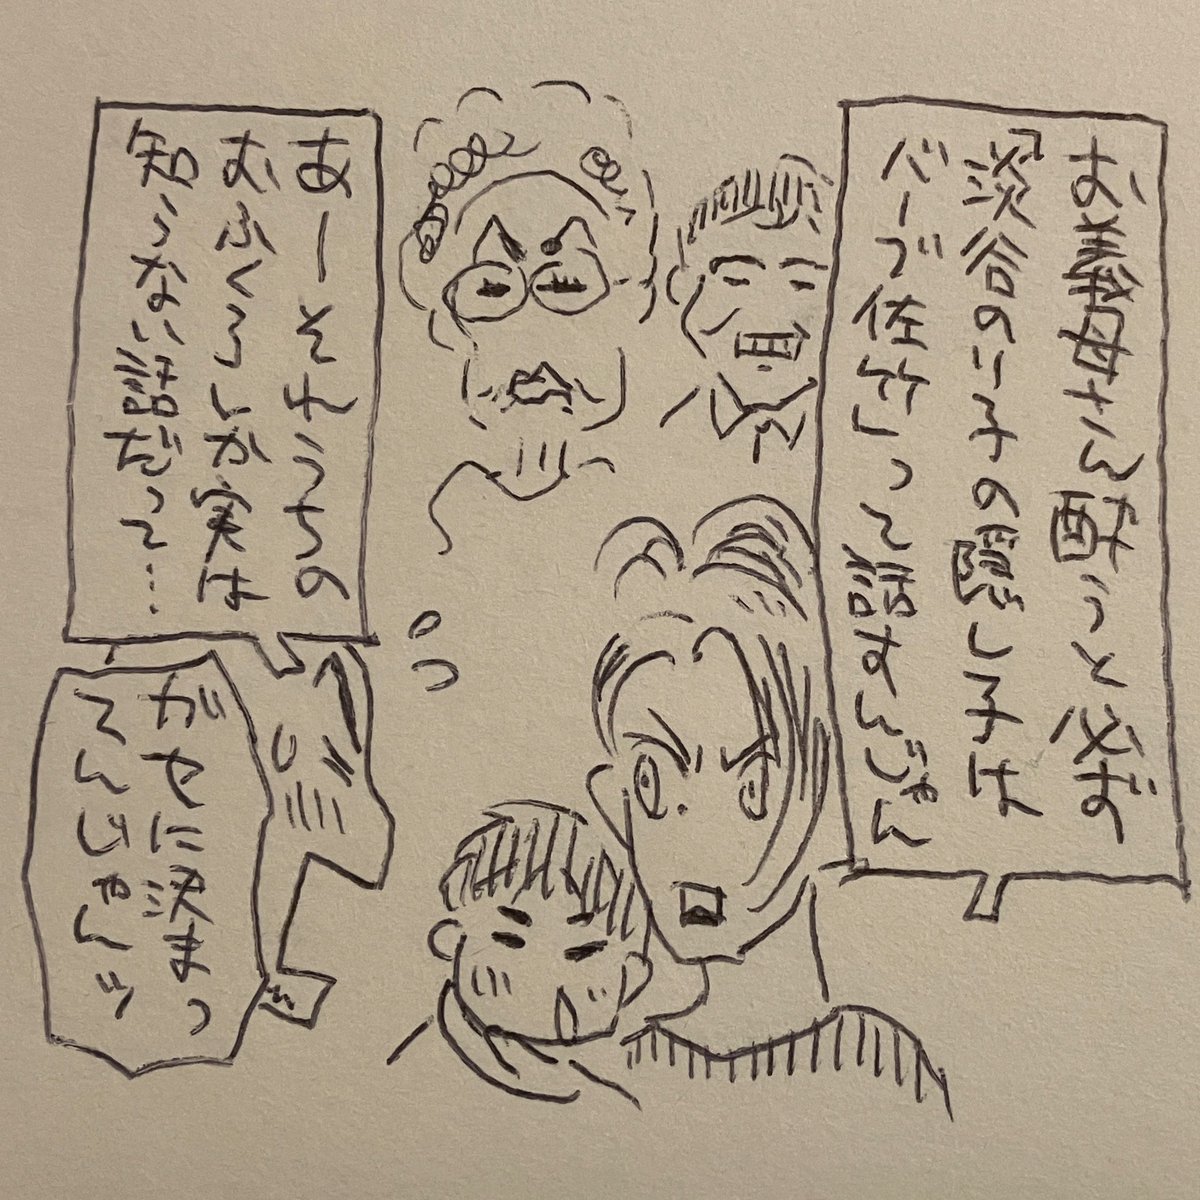 お義母さん酔うと必ず
「淡谷のり子の隠し子は
バーブ佐竹」って話すんじゃん
あーそれうちの
おふくろしか実は
知らない話だって…
ガセに決まっ
てんじゃんッ